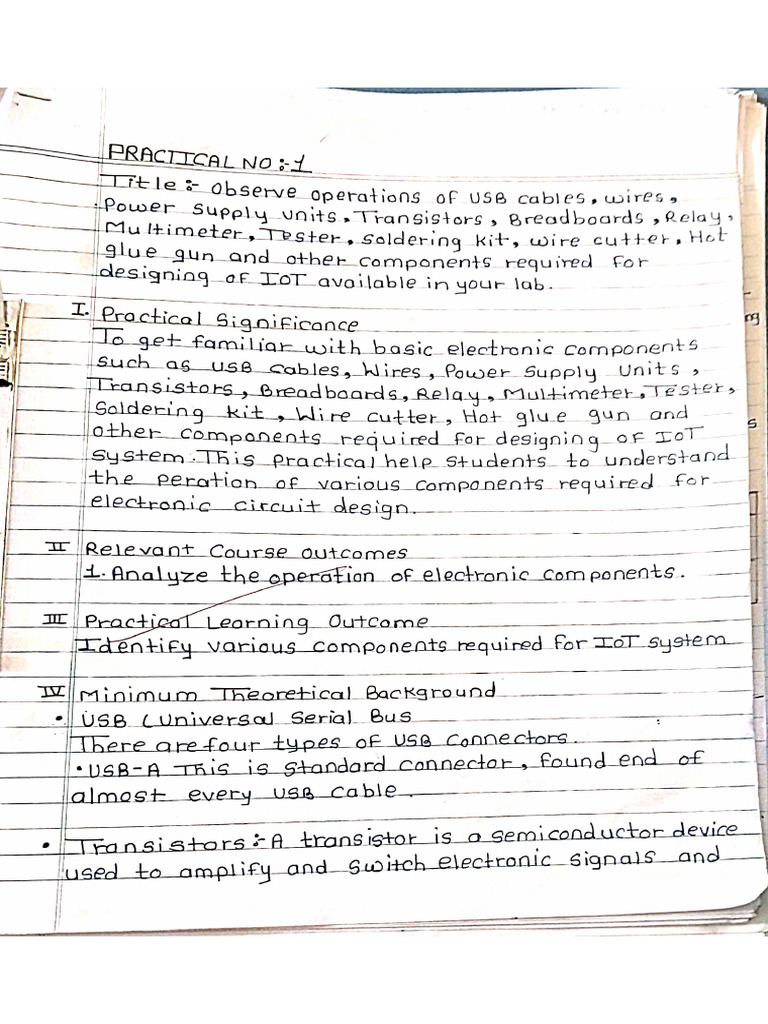 PRACTICAL NO :- 1
Title :- Observe operations of USB cables, wires,
Power Supply Units, Transistors, Breadboards, Relay,
Multimeter, Tester, Soldering kit, wire cutter, Hot
glue gun and other components required for
designing of IoT available in your lab.
I. Practical Significance
To get familiar with basic electronic components
such as USB Cables, Wires, Power Supply Units,
Transistors, Breadboards, Relay, Multimeter, Tester,
Soldering kit, Wire cutter, Hot glue gun and
other components required for designing of IoT
system. This Practical help Students to understand
the peration of various components required for
electronic circuit design.
II Relevant Course Outcomes
1. Analyze the operation of electronic components.
III Practical Learning Outcome
Identify various components required for IoT system
IV Minimum Theoretical Background
• USB (Universal Serial Bus
There are four types of USB Connectors.
• USB-A This is Standard connector, found end of
almost every USB Cable.
• Transistors :- A transistor is a semiconductor device
used to amplify and switch electronic signals and